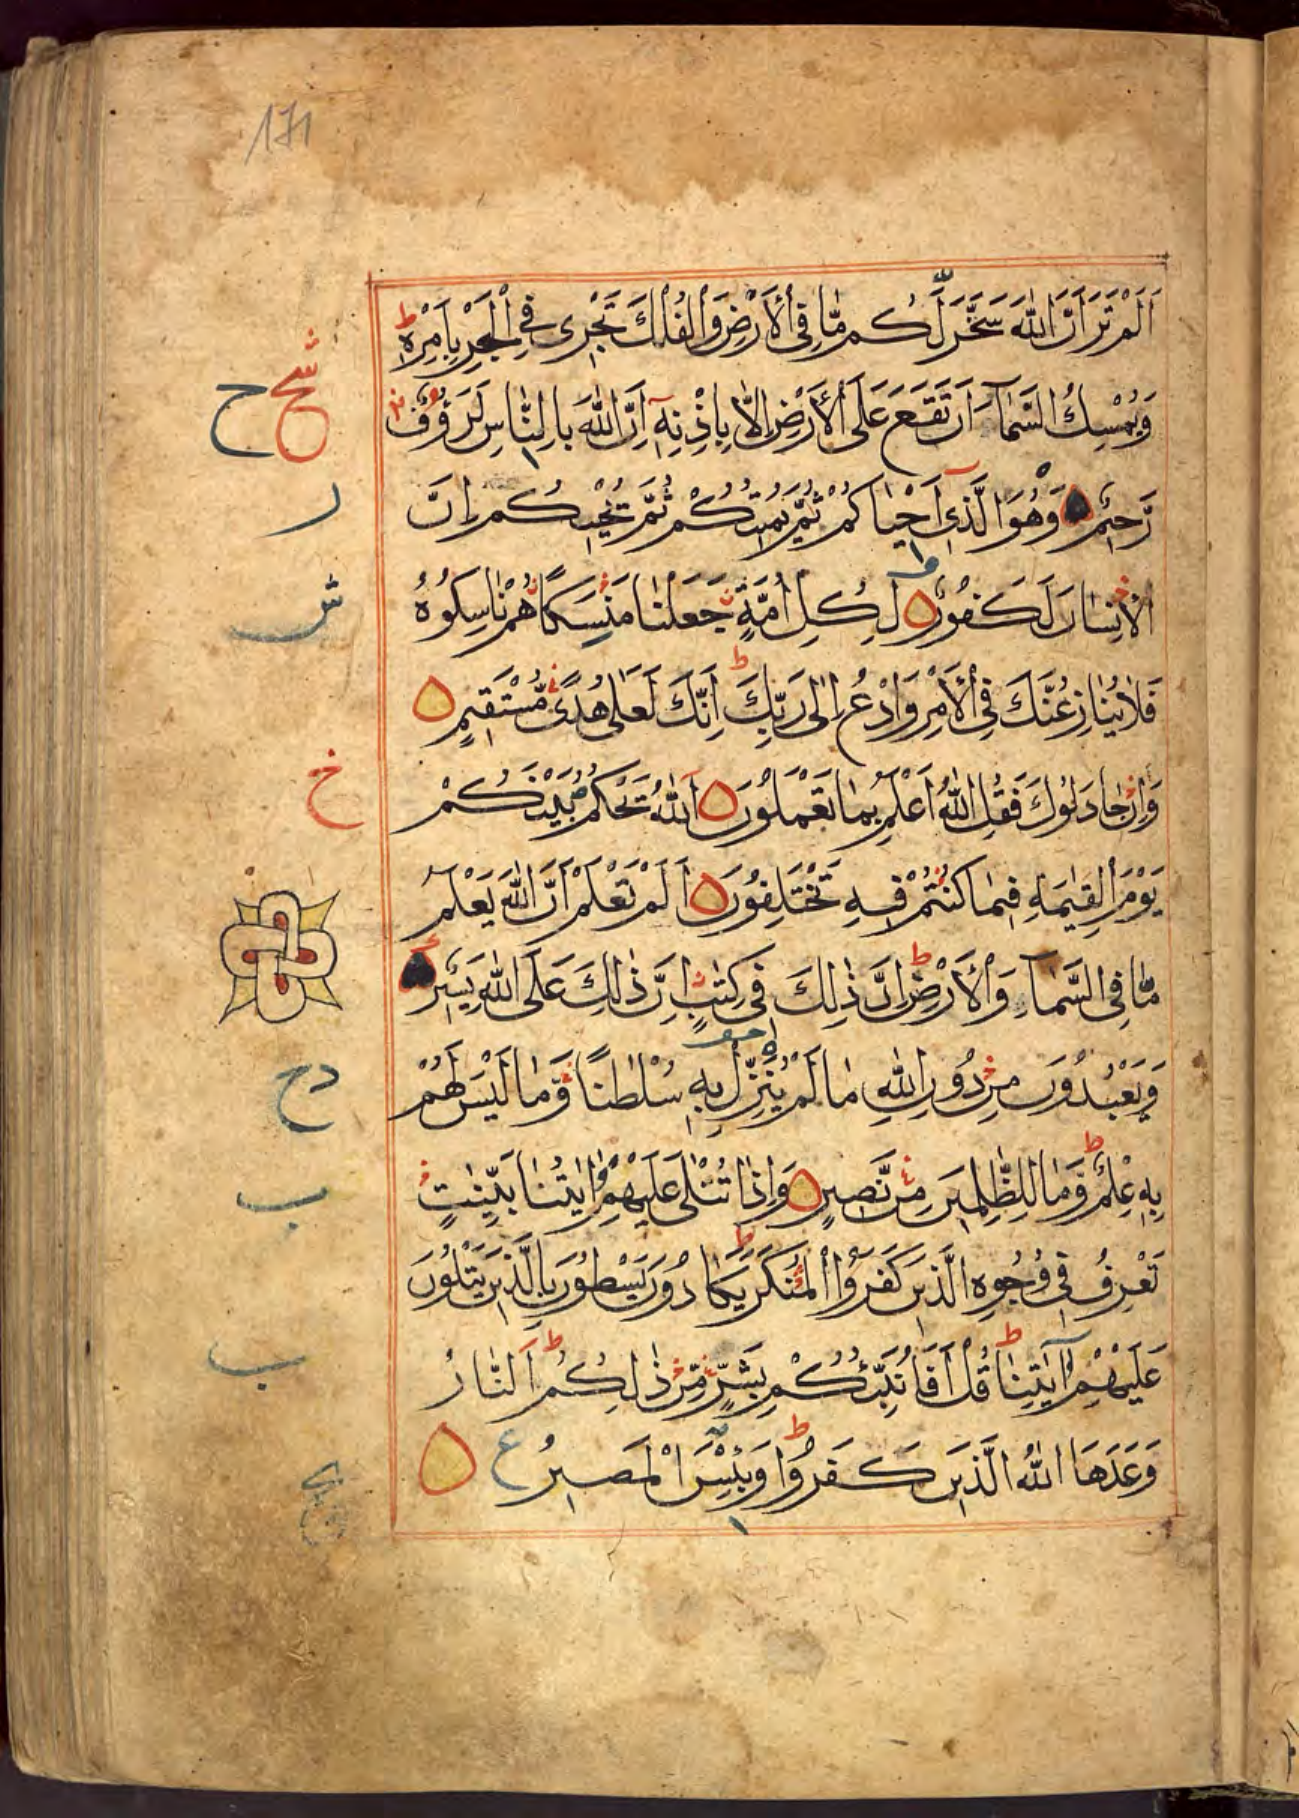 171
اَلَمْ تَرَ اَنَّ اللّٰهَ سَخَّرَ لَكُم مَّا فِى الْاَرْضِ وَالْفُلْكَ تَجْرِى فِى الْبَحْرِ بِاَمْرِهٖ ط
وَيُمْسِكُ السَّمَآءَ اَنْ تَقَعَ عَلَى الْاَرْضِ اِلَّا بِاِذْنِهٖ اِنَّ اللّٰهَ بِالنَّاسِ لَرَءُوْفٌ
رَّحِيْمٌ وَهُوَ الَّذِىٓ اَحْيَاكُمْ ثُمَّ يُمِيْتُكُمْ ثُمَّ يُحْيِيْكُم اِنَّ
الْاِنْسَانَ لَكَفُوْرٌ لِكُلِّ اُمَّةٍ جَعَلْنَا مَنْسَكًا هُمْ نَاسِكُوْهُ
فَلَا يُنَازِعُنَّكَ فِى الْاَمْرِ وَادْعُ اِلٰى رَبِّكَ ط اِنَّكَ لَعَلٰى هُدًى مُّسْتَقِيْمٍ
وَاِنْ جَادَلُوْكَ فَقُلِ اللّٰهُ اَعْلَمُ بِمَا تَعْمَلُوْنَ اَللّٰهُ يَحْكُمُ بَيْنَكُمْ
يَوْمَ الْقِيٰمَةِ فِيْمَا كُنْتُمْ فِيْهِ تَخْتَلِفُوْنَ اَلَمْ تَعْلَمْ اَنَّ اللّٰهَ يَعْلَمُ
مَا فِى السَّمَآءِ وَالْاَرْضِ ط اِنَّ ذٰلِكَ فِى كِتٰبٍ اِنَّ ذٰلِكَ عَلَى اللّٰهِ يَسِيْرٌ
وَيَعْبُدُوْنَ مِنْ دُوْنِ اللّٰهِ مَا لَمْ يُنَزِّلْ بِهٖ سُلْطٰنًا وَّمَا لَيْسَ لَهُمْ
بِهٖ عِلْمٌ ط وَمَا لِلظّٰلِمِيْنَ مِنْ نَّصِيْرٍ وَاِذَا تُتْلٰى عَلَيْهِمْ اٰيٰتُنَا بَيِّنٰتٍ
تَعْرِفُ فِى وُجُوْهِ الَّذِيْنَ كَفَرُوا الْمُنْكَرَ ط يَكَادُوْنَ يَسْطُوْنَ بِالَّذِيْنَ يَتْلُوْنَ
عَلَيْهِمْ اٰيٰتِنَا ط قُلْ اَفَاُنَبِّئُكُمْ بِشَرٍّ مِّنْ ذٰلِكُمْ ط اَلنَّارُ
وَعَدَهَا اللّٰهُ الَّذِيْنَ كَفَرُوْا ط وَبِئْسَ الْمَصِيْرُ ع
ح
ر
خ
دح
ب
ب